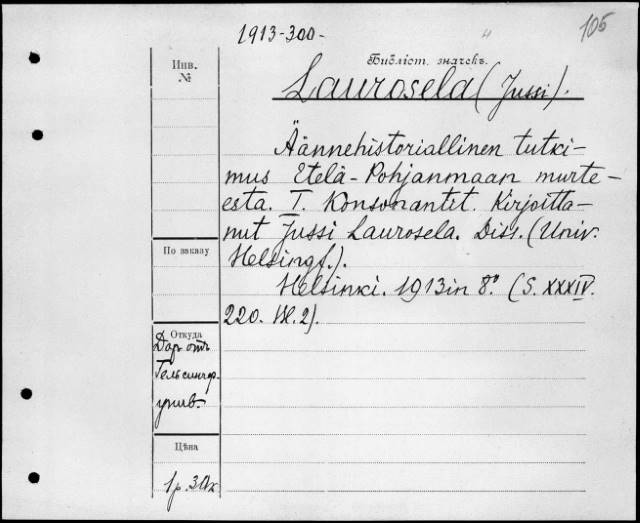 105
1913-300-
Инв.
№
Библіот. значекъ.
Laurosela (Jussi).
Äännehistoriallinen tutki-
mus Etelä-Pohjanmaan murte-
esta. I. Konsonantit. Kirjoitta-
nut Jussi Laurosela. Diss. (Univ.
Helsingf.).
Helsinki. 1913 in 8°. (S. XXXIV.
220. 2).
По заказу
Откуда
Дар отъ
Гельсингф.
унив.
Цѣна
1р. 30к